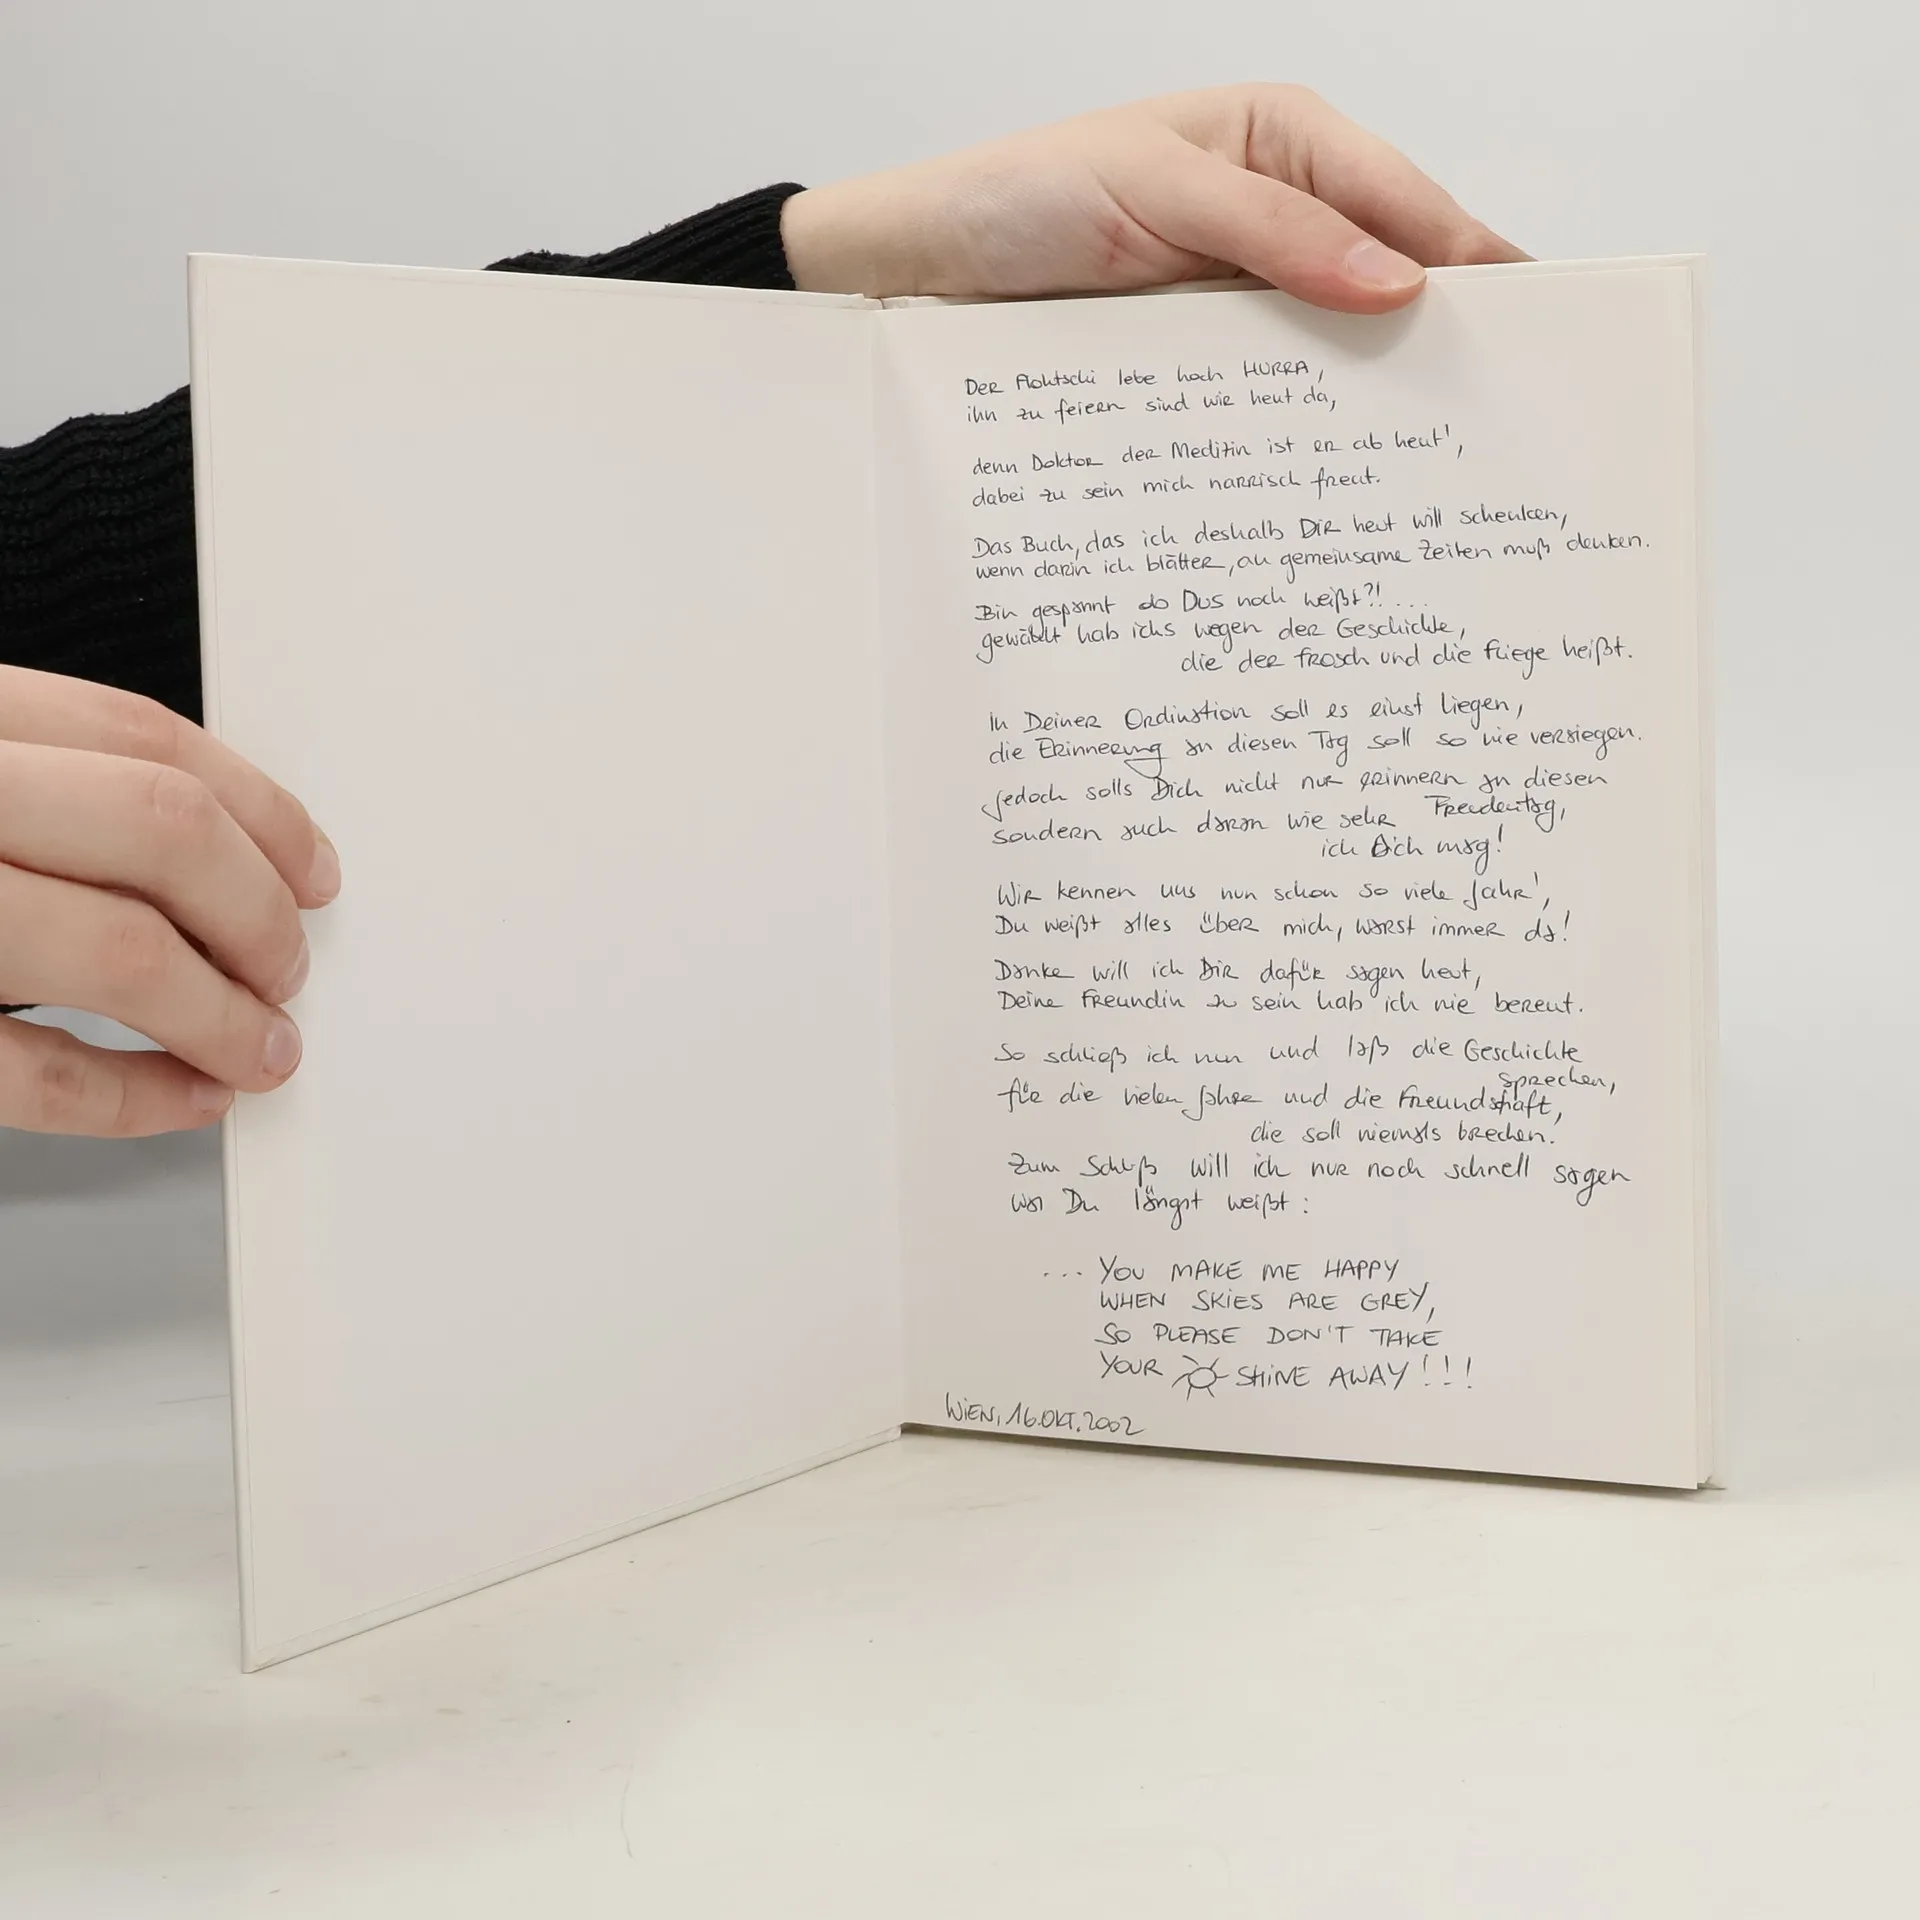 Der lebe hoch HURRA,
ihn zu feiern sind wir heut da,
denn Doktor der Medizin ist er ab heut',
dabei zu sein mich narrisch freut.
Das Buch, das ich deshalb Dir heut will schenken,
wenn darin ich blätter, an gemeinsame Zeiten muß denken.
Bin gespannt ob Dus noch weißt?!...
gewählt hab ichs wegen der Geschichte,
die der Frosch und die Fliege heißt.
In Deiner Ordination soll es einst liegen,
die Erinnerung an diesen Tag soll so nie versiegen.
Jedoch solls Dich nicht nur erinnern an diesen
Freudentag,
sondern auch daran wie sehr
ich Dich mag!
Wir kennen uns nun schon so viele Jahr',
Du weißt alles über mich, warst immer da!
Danke will ich Dir dafür sagen heut,
Deine Freundin zu sein hab ich nie bereut.
So schließ ich nun und laß die Geschichte
sprechen,
für die vielen Jahre und die Freundschaft,
die soll niemals brechen.
Zum Schluß will ich nur noch schnell sagen
was Du längst weißt:
... YOU MAKE ME HAPPY
WHEN SKIES ARE GREY,
SO PLEASE DON'T TAKE
YOUR SHINE AWAY!!!
WIEN, 16.OKT.2002